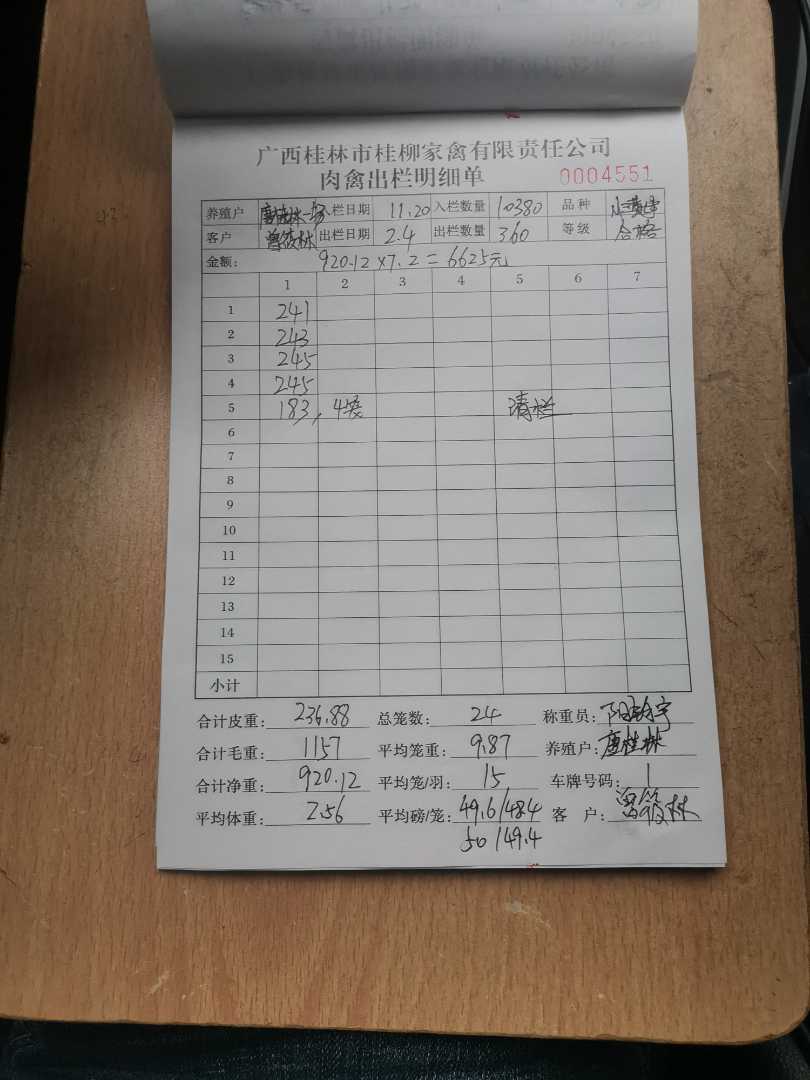 广西桂林市桂柳家禽有限责任公司
肉禽出栏明细单 0004551
养殖户 唐桂林一场 入栏日期 11.20 入栏数量 10380 品种
客户 曾筱林 出栏日期 2.4 出栏数量 360 等级 合格
金额: 920.12×7.2=6625元
1 2 3 4 5 6 7
1 241
2 243
3 245
4 245
5 183, 4笼 清栏
6
7
8
9
10
11
12
13
14
15
小计
合计皮重: 236.88 总笼数: 24 称重员:
合计毛重: 1157 平均笼重: 9.87 养殖户: 唐桂林
合计净重: 920.12 平均笼/羽: 15 车牌号码: 1
平均体重: 2.56 平均磅/笼: 49.6/48.4 客 户: 曾筱林
50/49.4